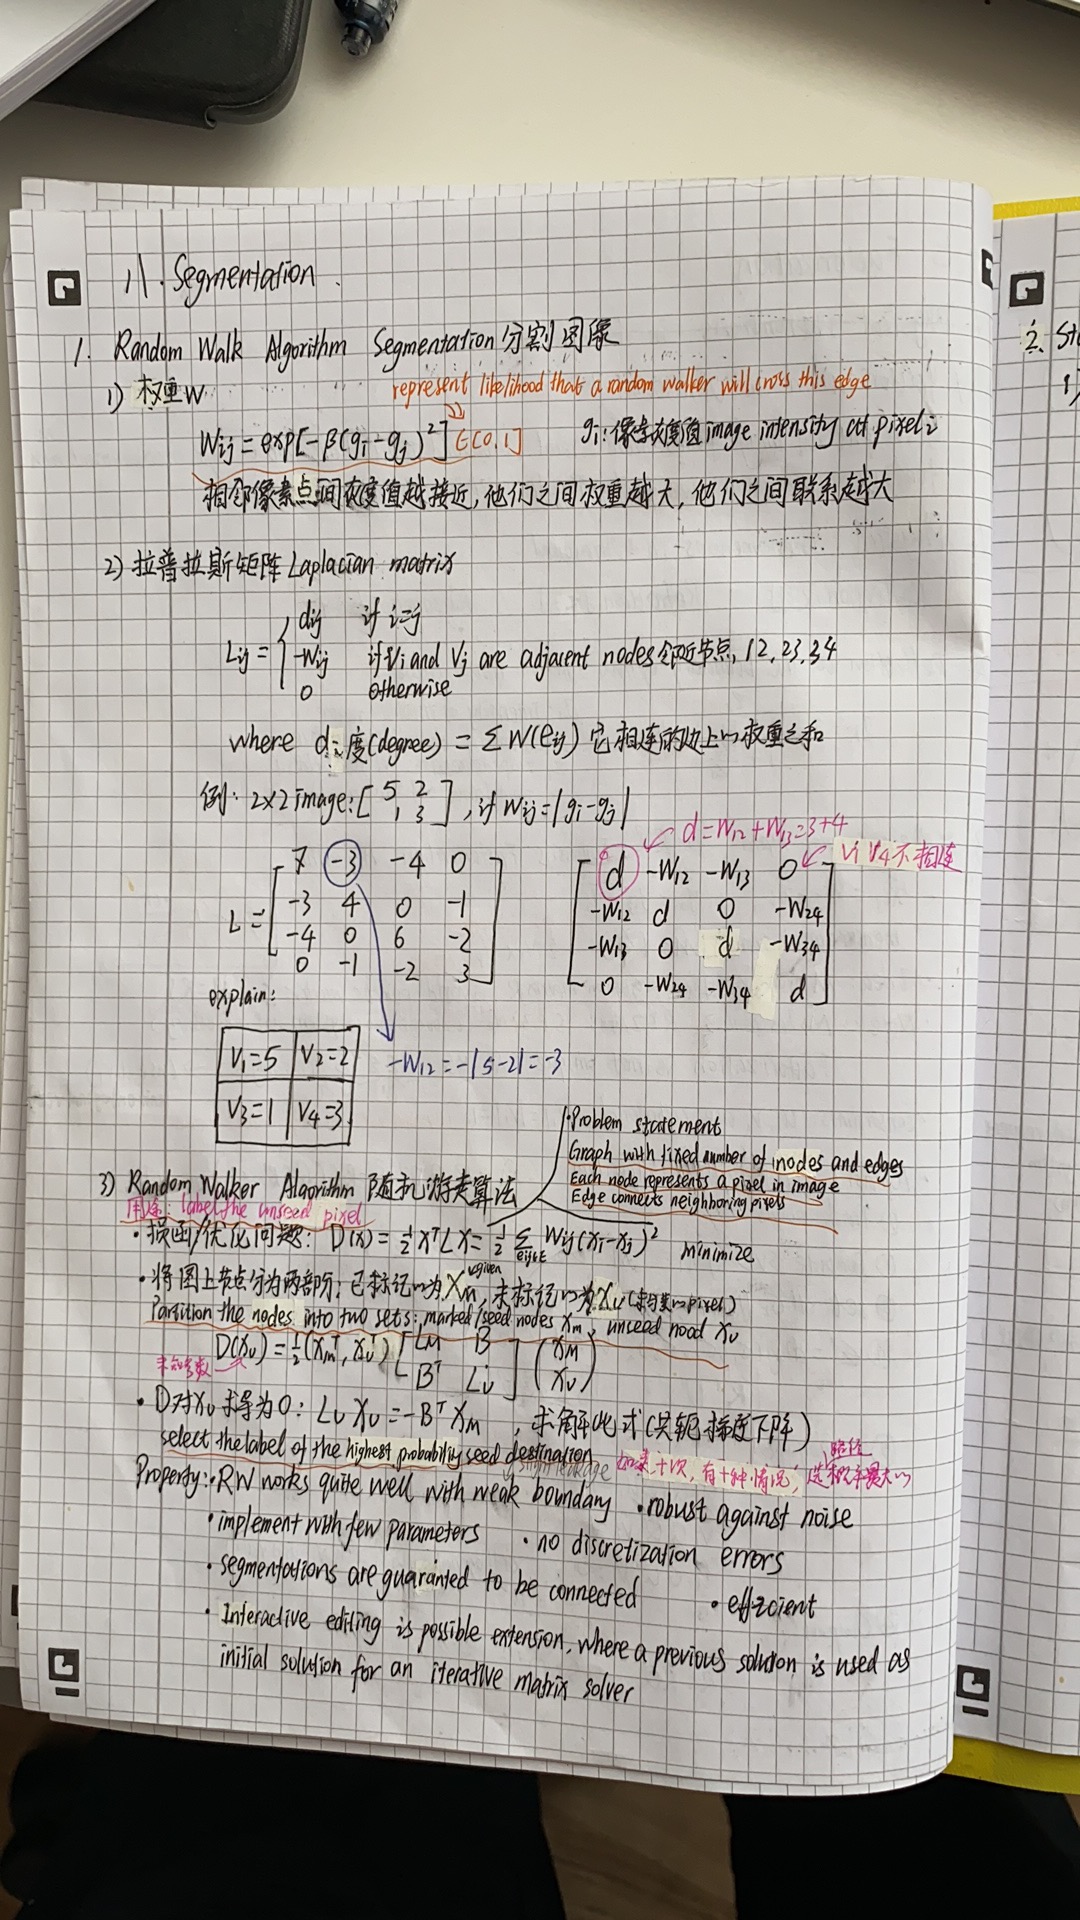 11. Segmentation.
1. Random Walk Algorithm Segmentation 分割图像
1) 权重W
represent likelihood that a random walker will cross this edge
Wij = exp[-β(gi-gj)²] ∈[0,1] gi: 像素灰度值 image intensity at pixel i
相邻像素点间灰度值越接近, 他们之间权重越大, 他们之间联系越大
2) 拉普拉斯矩阵 Laplacian matrix
dij if i=j
Lij = { -Wij if Vi and Vj are adjacent nodes 邻近节点, 12, 23, 34
0 otherwise
where di 度(degree) = ΣW(eij) 它相连的边上的权重之和
例: 2×2 image: [5 2
1 3], if Wij = |gi-gj|
d = W12 + W13 = 3+4
V1 V4 不相连
L = [7 -3 -4 0
-3 4 0 -1
-4 0 6 -2
0 -1 -2 3]
[d -W12 -W13 0
-W12 d 0 -W24
-W13 0 d -W34
0 -W24 -W34 d]
explain:
V1=5 V2=2
V3=1 V4=3
-W12 = -|5-2| = -3
·Problem statement
Graph with fixed number of nodes and edges
Each node represents a pixel in image
Edge connects neighboring pixels
3) Random Walker Algorithm 随机游走算法
用途: label the unseed pixel
·损函/优化问题: D(x) = ½ xᵀLx = ½ Σ eij∈E Wij(xi-xj)² minimize
·将图上节点分为两部分: 已标记的为Xm given, 未标记的为Xu(未分类的pixel)
Partition the nodes into two sets: marked/seed nodes Xm, unseed nood Xu
D(Xu) = ½(Xmᵀ, Xuᵀ) [LM B
Bᵀ Lu] (XM
Xu)
未知参数
·D对Xu求导为0: Lu Xu = -Bᵀ Xm, 求解此式(共轭梯度下降)
select the label of the highest probability seed destination
slight leakage
如果十次, 有十种情况, 选概率最大的
路径
Property: ·RW works quite well with weak boundary ·robust against noise
·implement with few parameters ·no discretization errors
·segmentations are guaranted to be connected ·efficient
·Interactive editing is possible extension, where a previous solution is used as
initial solution for an iterative matrix solver
2. St
1)